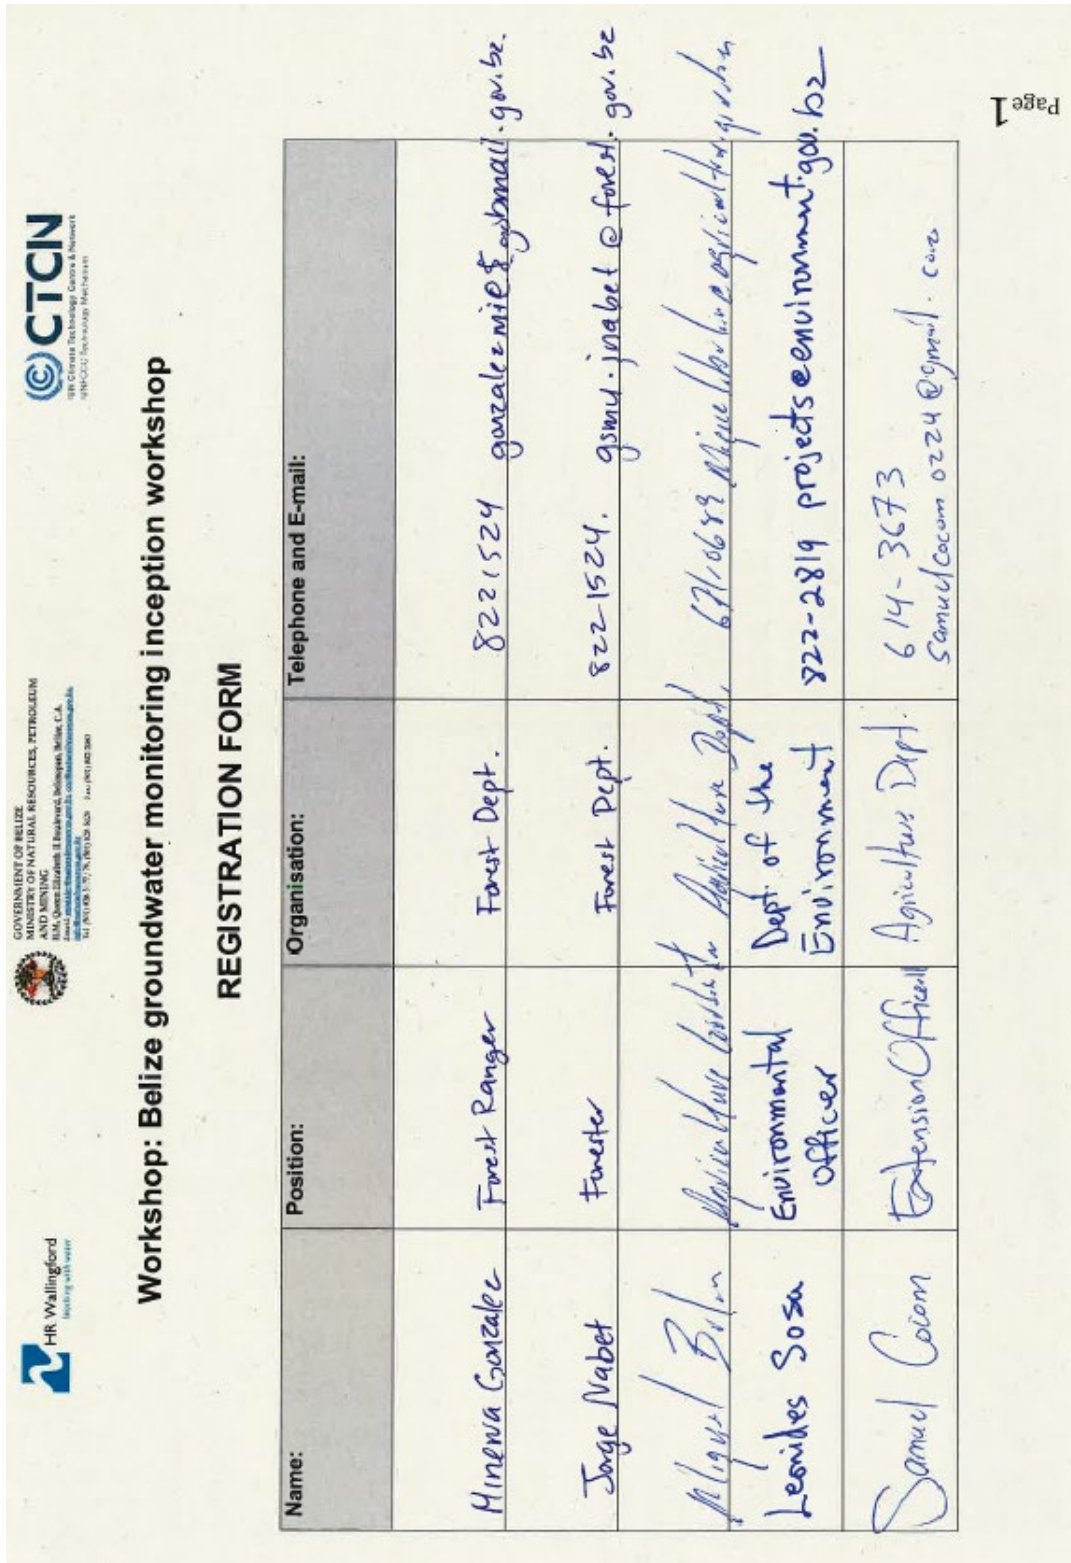 HR Wallingford
GOVERNMENT OF BELIZE
MINISTRY OF NATURAL RESOURCES, PETROLEUM
AND MINING
CTCN
UN Climate Technology Centre & Network
UNFCCC Technology Mechanism
Workshop: Belize groundwater monitoring inception workshop
REGISTRATION FORM
Name: Position: Organisation: Telephone and E-mail:
Minerva Gonzalez Forest Ranger Forest Dept. 8221524
Jorge Nabet Forester Forest Dept. 822-1524. gsmu.jnabet@forest.gov.bz
Miguel Agriculture Agriculture Dept.
Leonides Sosa Environmental Officer Dept. of the Environment 822-2819 projects@environment.gov.bz
Samuel Cocom Extension Officer Agriculture Dept. 614-3673
samuelcocom0224@gmail.com
Page 1